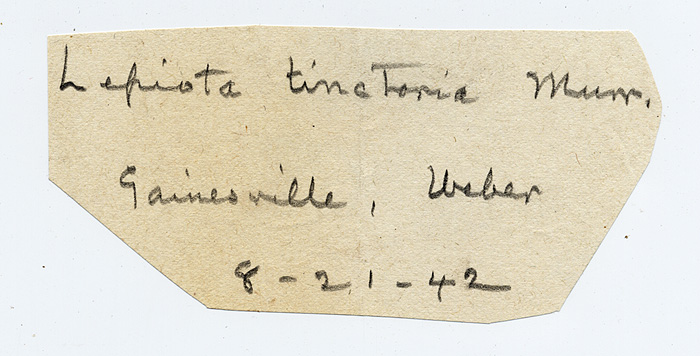 Lepiota tinctoria Murr.
Gainesville, Weber
8-21-42